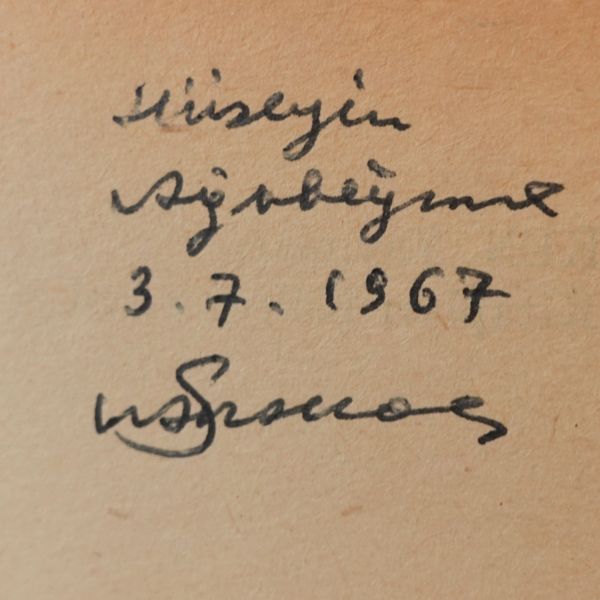 Hüseyin
Ağabeyime
3.7.1967